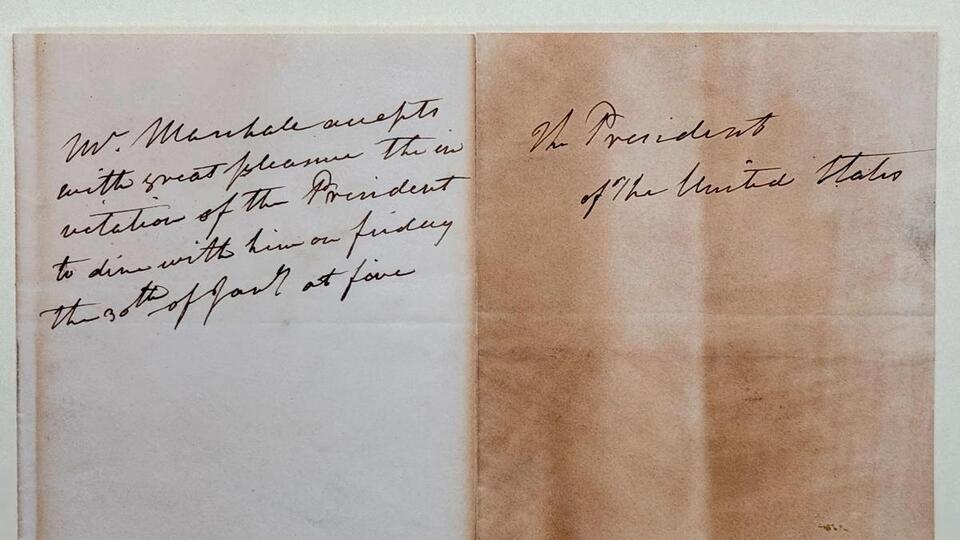 Mr. Marshall accepts
with great pleasure the in
vitation of the President
to dine with him on friday
the 30th of Jany at five
The President
of the United States